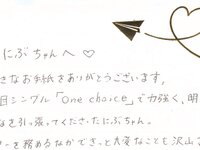 にぶちゃんへ♡
きなお手紙をありがとうございます。
目シングル「One choice」で力強く、明
なを引っ張ってくださったにぶちゃん。
ーを務めるなかできっと大変なことも沢山